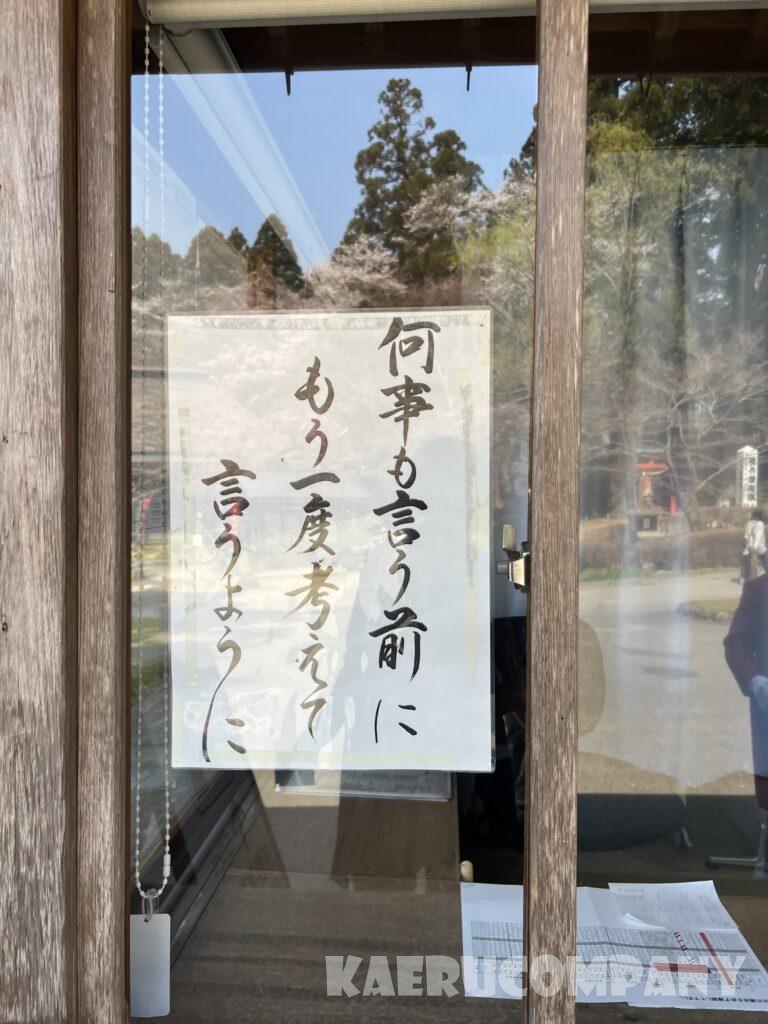 何事も言う前に
もう一度考えて
言うように
KAERUCOMPANY